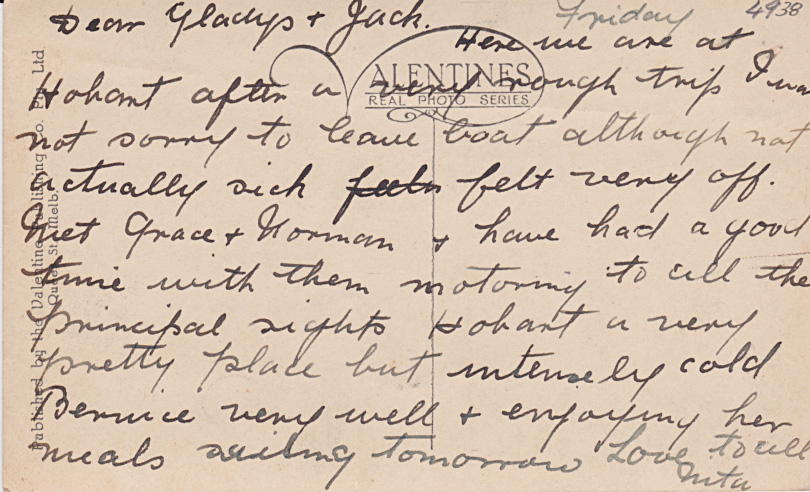 Friday 4938
Dear Gladys & Jack.
Here we are at
Hobart after a very rough trip I was
not sorry to leave boat although not
actually sick feeln felt very off.
Met Grace & Norman & have had a good
time with them motoring to all the
principal sights Hobart a very
pretty place but intensely cold
Bernice very well & enjoying her
meals sailing tomorrow Love to all
Nita
VALENTINES
REAL PHOTO SERIES
Published by the Valentine Publishing Co. Pty. Ltd
Queen St. Melb.